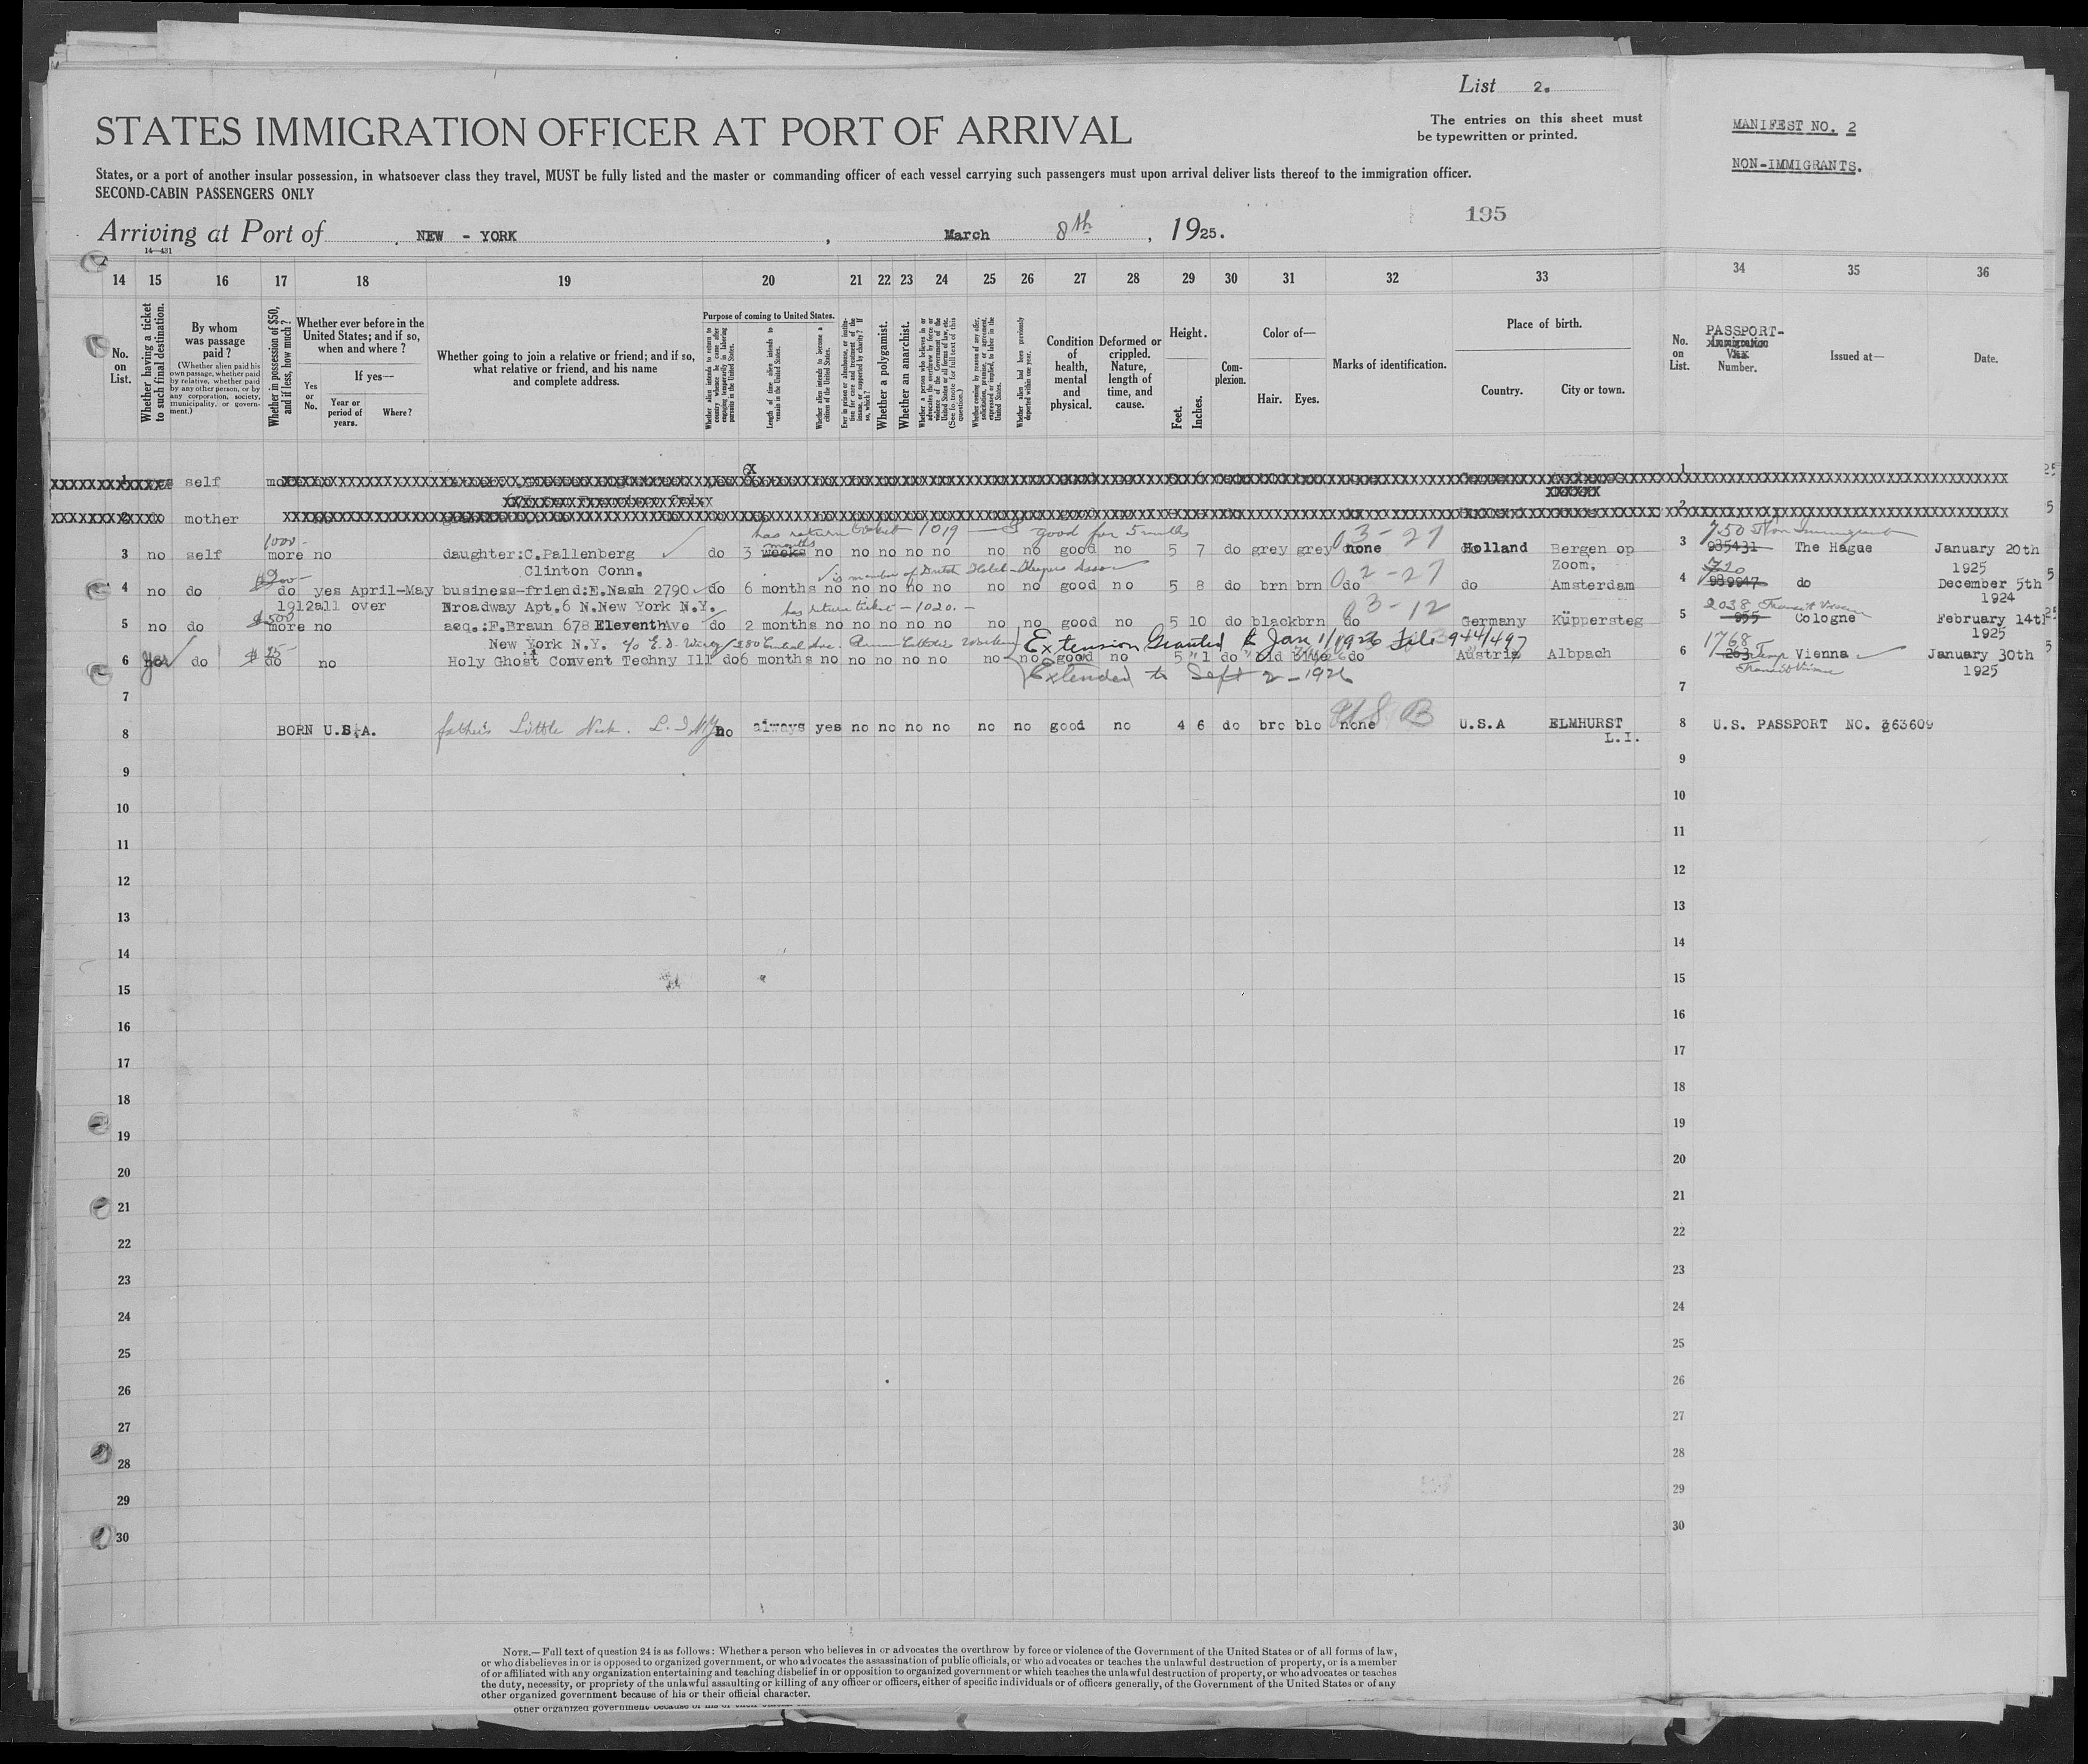 List 2.
STATES IMMIGRATION OFFICER AT PORT OF ARRIVAL
The entries on this sheet must
be typewritten or printed.
MANIFEST NO. 2
NON-IMMIGRANTS.
States, or a port of another insular possession, in whatsoever class they travel, MUST be fully listed and the master or commanding officer of each vessel carrying such passengers must upon arrival deliver lists thereof to the immigration officer.
SECOND-CABIN PASSENGERS ONLY
195
Arriving at Port of NEW - YORK , March 8th , 1925.
14—431
14 15 16 17 18 19 20 21 22 23 24 25 26 27 28 29 30 31 32 33 34 35 36
No. on List.
Whether having a ticket to such final destination.
By whom was passage paid?
(Whether alien paid his own passage, whether paid by relative, whether paid by any other person, or by any corporation, society, municipality, or government.)
Whether in possession of $50, and if less, how much?
Whether ever before in the United States; and if so, when and where?
Yes or No.
If yes—
Year or period of years.
Where?
Whether going to join a relative or friend; and if so, what relative or friend, and his name and complete address.
Purpose of coming to United States.
Whether alien intends to return to country whence he came after engaging temporarily in laboring pursuits in the United States.
Length of time alien intends to remain in the United States.
Whether alien intends to become a citizen of the United States.
Ever in prison or almshouse, or institution for care and treatment of the insane, or supported by charity? If so, which?
Whether a polygamist.
Whether an anarchist.
Whether a person who believes in or advocates the overthrow by force or violence of the Government of the United States or all forms of law, etc. (See footnote for full text of this question.)
Whether coming by reason of any offer, solicitation, promise, or agreement, expressed or implied, to labor in the United States.
Whether alien had been previously deported within one year.
Condition of health, mental and physical.
Deformed or crippled. Nature, length of time, and cause.
Height.
Feet. Inches.
Complexion.
Color of—
Hair. Eyes.
Marks of identification.
Place of birth.
Country. City or town.
No. on List.
PASSPORT-
Number.
Issued at—
Date.
1 self
2 mother
has return ticket - 1019 — good for 5 months 03-27 750 Non Immigrant
1000- months
3 no self more no daughter:C.Pallenberg do 3 weeks no no no no no no no good no 5 7 do grey grey none Holland Bergen op 3 935431 The Hague January 20th
Clinton Conn. Zoom. 1925
is member of Dutch Hotel-Keepers Assoc 02-27 720
4 no do do yes April-May business-friend:E.Nash 2790 do 6 months no no no no no no no good no 5 8 do brn brn do do Amsterdam 4 939947 do December 5th
1912 all over Broadway Apt.6 N.New York N.Y. has return ticket - 1020. - 03-12 1924
$500 2038
5 no do more no acq.:F.Braun 678 Eleventh Ave do 2 months no no no no no no no good no 5 10 do black brn do Germany Küppersteg 5 955 Cologne February 14th
New York N.Y. Extension Granted to Jan 1/1926 File 1925
yes $25- 1768
6 no do do no Holy Ghost Convent Techny Ill do 6 months no no no no no no no good no 5 1 do do Austria Albpach 6 263 Vienna January 30th
Extended to Sept 2-1926 Transit Visum 1925
7 7
8 BORN U.S.A. father's Little Neck. L.I. N.Y. no always yes no no no no no no good no 4 6 do bro blo none U.S.A ELMHURST 8 U.S. PASSPORT NO. 363609
USB L.I.
9 9
10 10
11 11
12 12
13 13
14 14
15 15
16 16
17 17
18 18
19 19
20 20
21 21
22 22
23 23
24 24
25 25
26 26
27 27
28 28
29 29
30 30
NOTE.—Full text of question 24 is as follows: Whether a person who believes in or advocates the overthrow by force or violence of the Government of the United States or of all forms of law,
or who disbelieves in or is opposed to organized government, or who advocates the assassination of public officials, or who advocates or teaches the unlawful destruction of property, or is a member
of or affiliated with any organization entertaining and teaching disbelief in or opposition to organized government or which teaches the unlawful destruction of property, or who advocates or teaches
the duty, necessity, or propriety of the unlawful assaulting or killing of any officer or officers, either of specific individuals or of officers generally, of the Government of the United States or of any
other organized government because of his or their official character.
other organized government because of his or their official